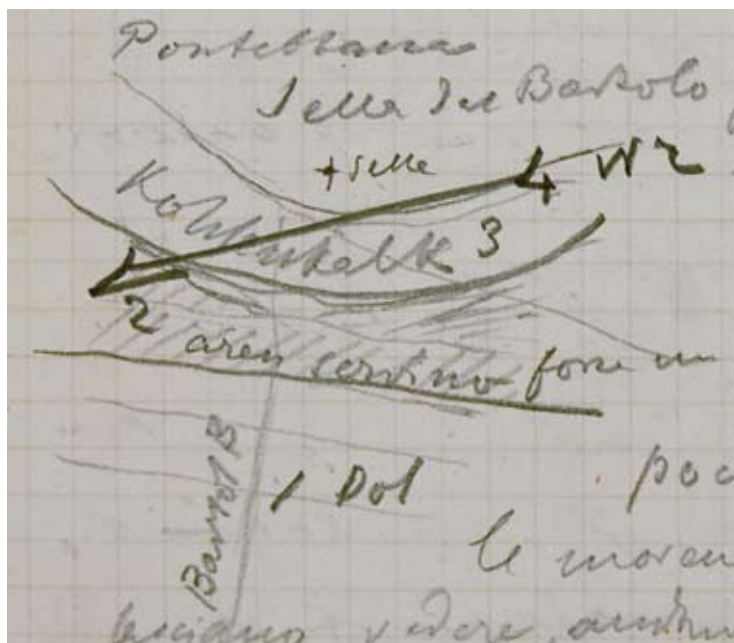 Pontebbana
Sella del Bartolo
+ Selle
4 W 2
Kohlenkalk 3
2 aren servino forse un
Bartol B
1 Dol
poc
le moren
vedere